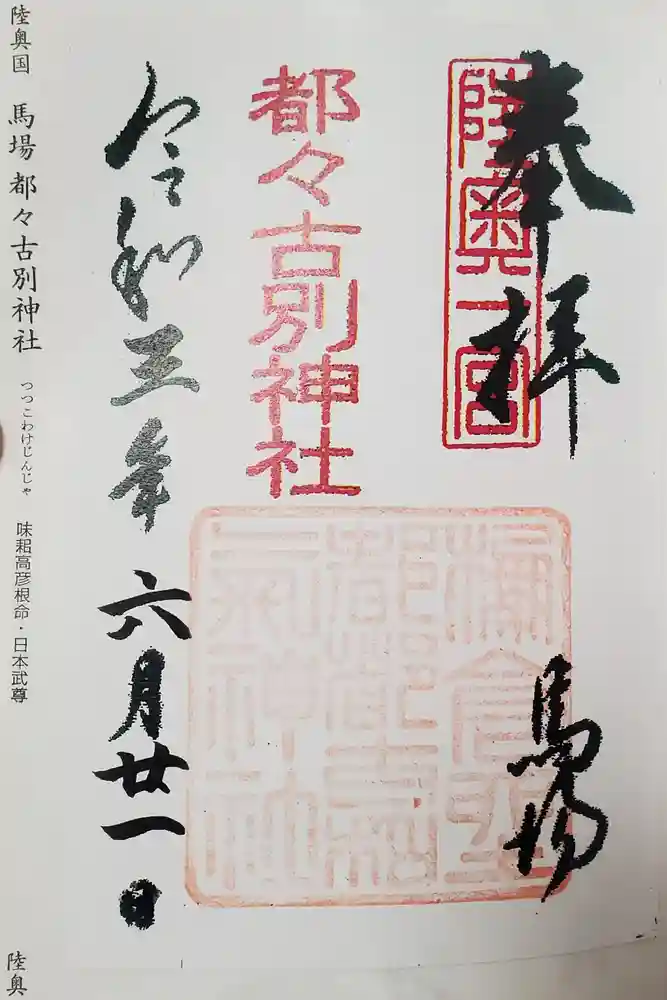 奉拝
陸奥一宮
馬場
都々古別神社
令和三年六月廿一日
陸奥国 馬場都々古別神社 つつこわけじんじゃ 味耜高彦根命・日本武尊
陸奥